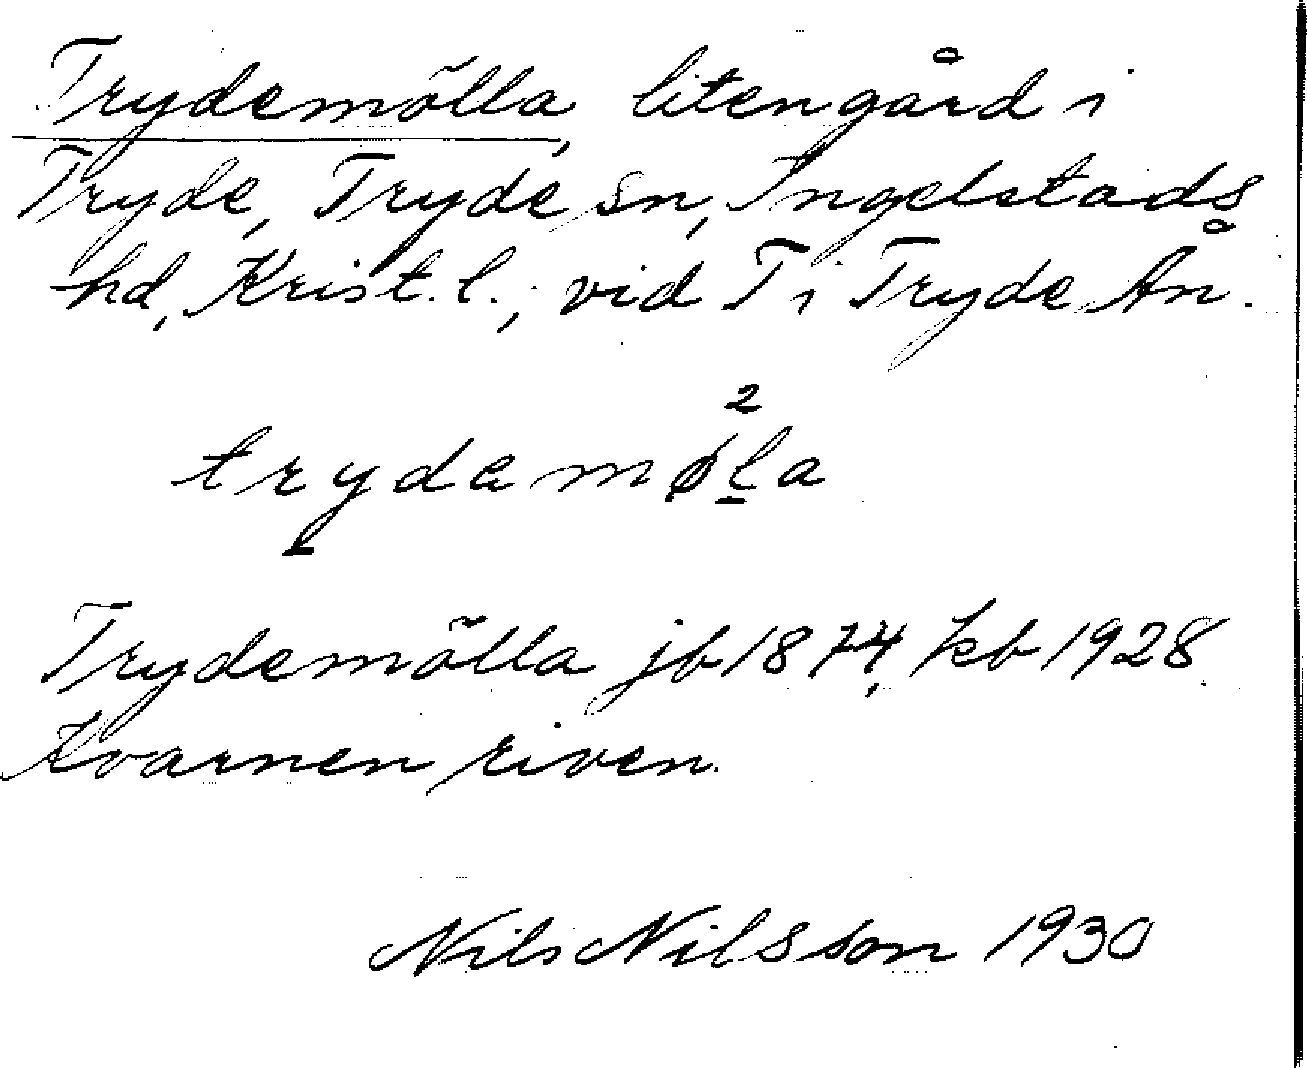 Trydemölla, liten gård i
Tryde, Tryde sn, Ingelstads
hd, Krist. l., vid T i Tryde Ån.
trydamø²la
Trydemölla jb 1874, kb 1928.
Kvarnen riven.
Nils Nilsson 1930